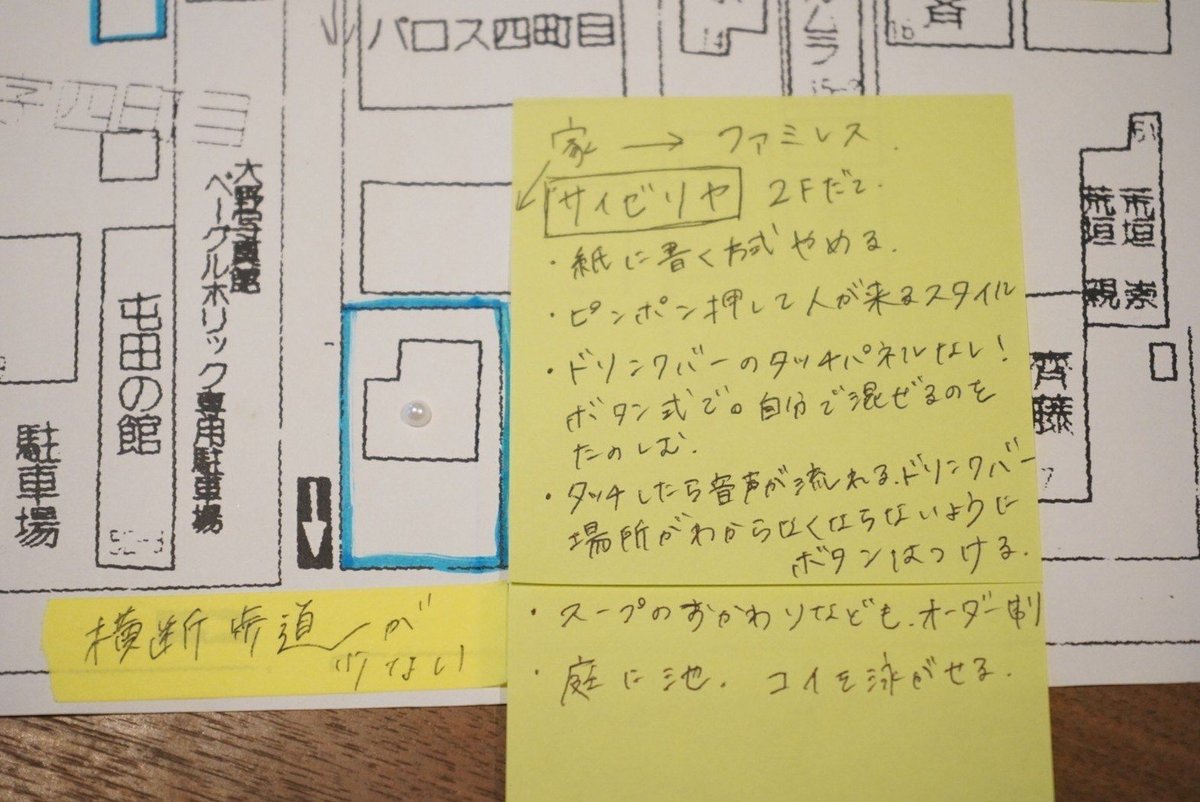 パロス四町目
斉
家 → ファミレス.
サイゼリヤ 2Fだて.
・紙に書く方式やめる.
・ピンポン押して人が来るスタイル
・ドリンクバーのタッチパネルなし!
ボタン式で。自分で混ぜるのを
たのしむ.
・タッチしたら音声が流れる.ドリンクバー
場所がわからなくならないように
ボタンはつける.
・スープのおかわりなども、オーダー制
・庭に池. コイを泳がせる.
大野写真館
ベーグルホリック専用駐車場
屯田の館
駐車場
横断歩道が
少ない
荒垣
荒垣 親
齊藤